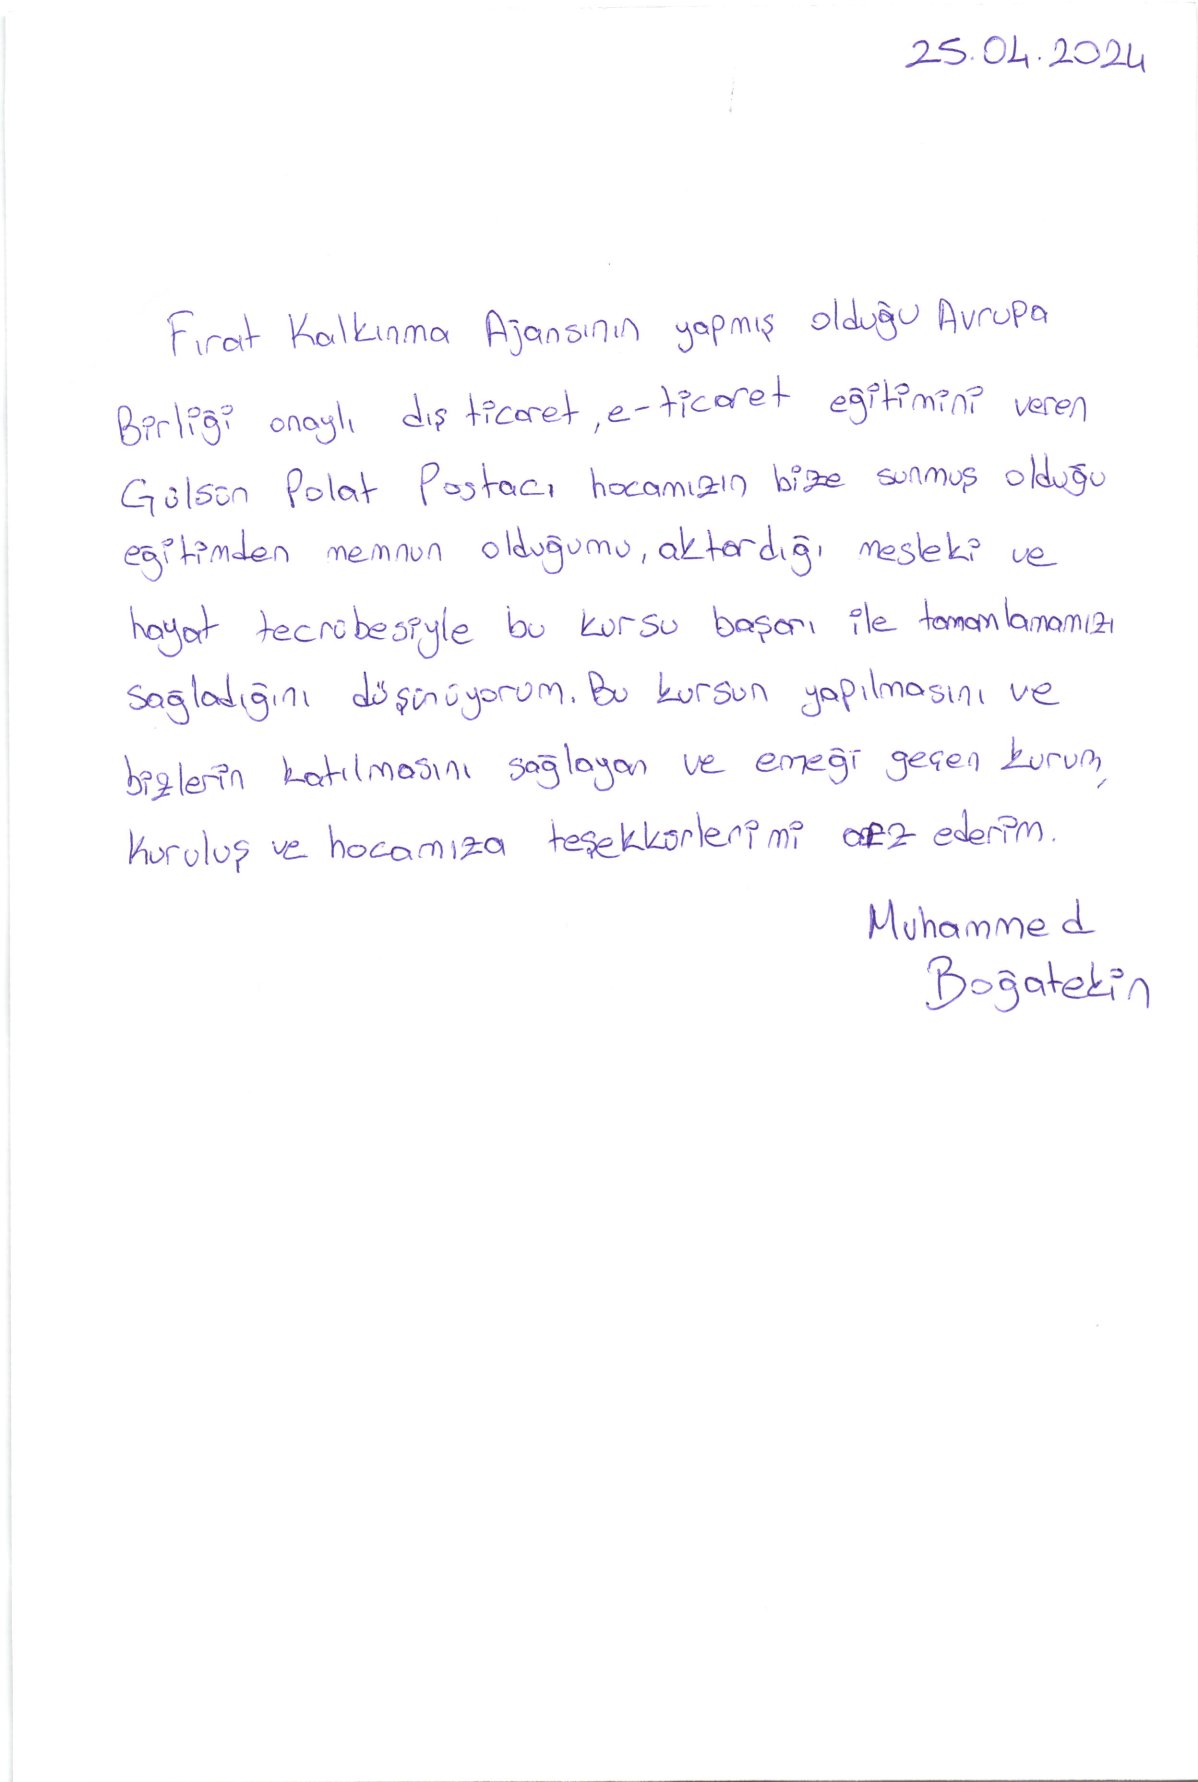 25.04.2024
Fırat Kalkınma Ajansının yapmış olduğu Avrupa
Birliği onaylı dış ticaret, e-ticaret eğitimini veren
Gülsün Polat Postacı hocamızın bize sunmuş olduğu
eğitimden memnun olduğumu, aktardığı mesleki ve
hayat tecrübesiyle bu kursu başarı ile tamamlamamızı
sağladığını düşünüyorum. Bu kursun yapılmasını ve
bizlerin katılmasını sağlayan ve emeği geçen kurum,
kuruluş ve hocamıza teşekkürlerimi arz ederim.
Muhammed
Boğatekin